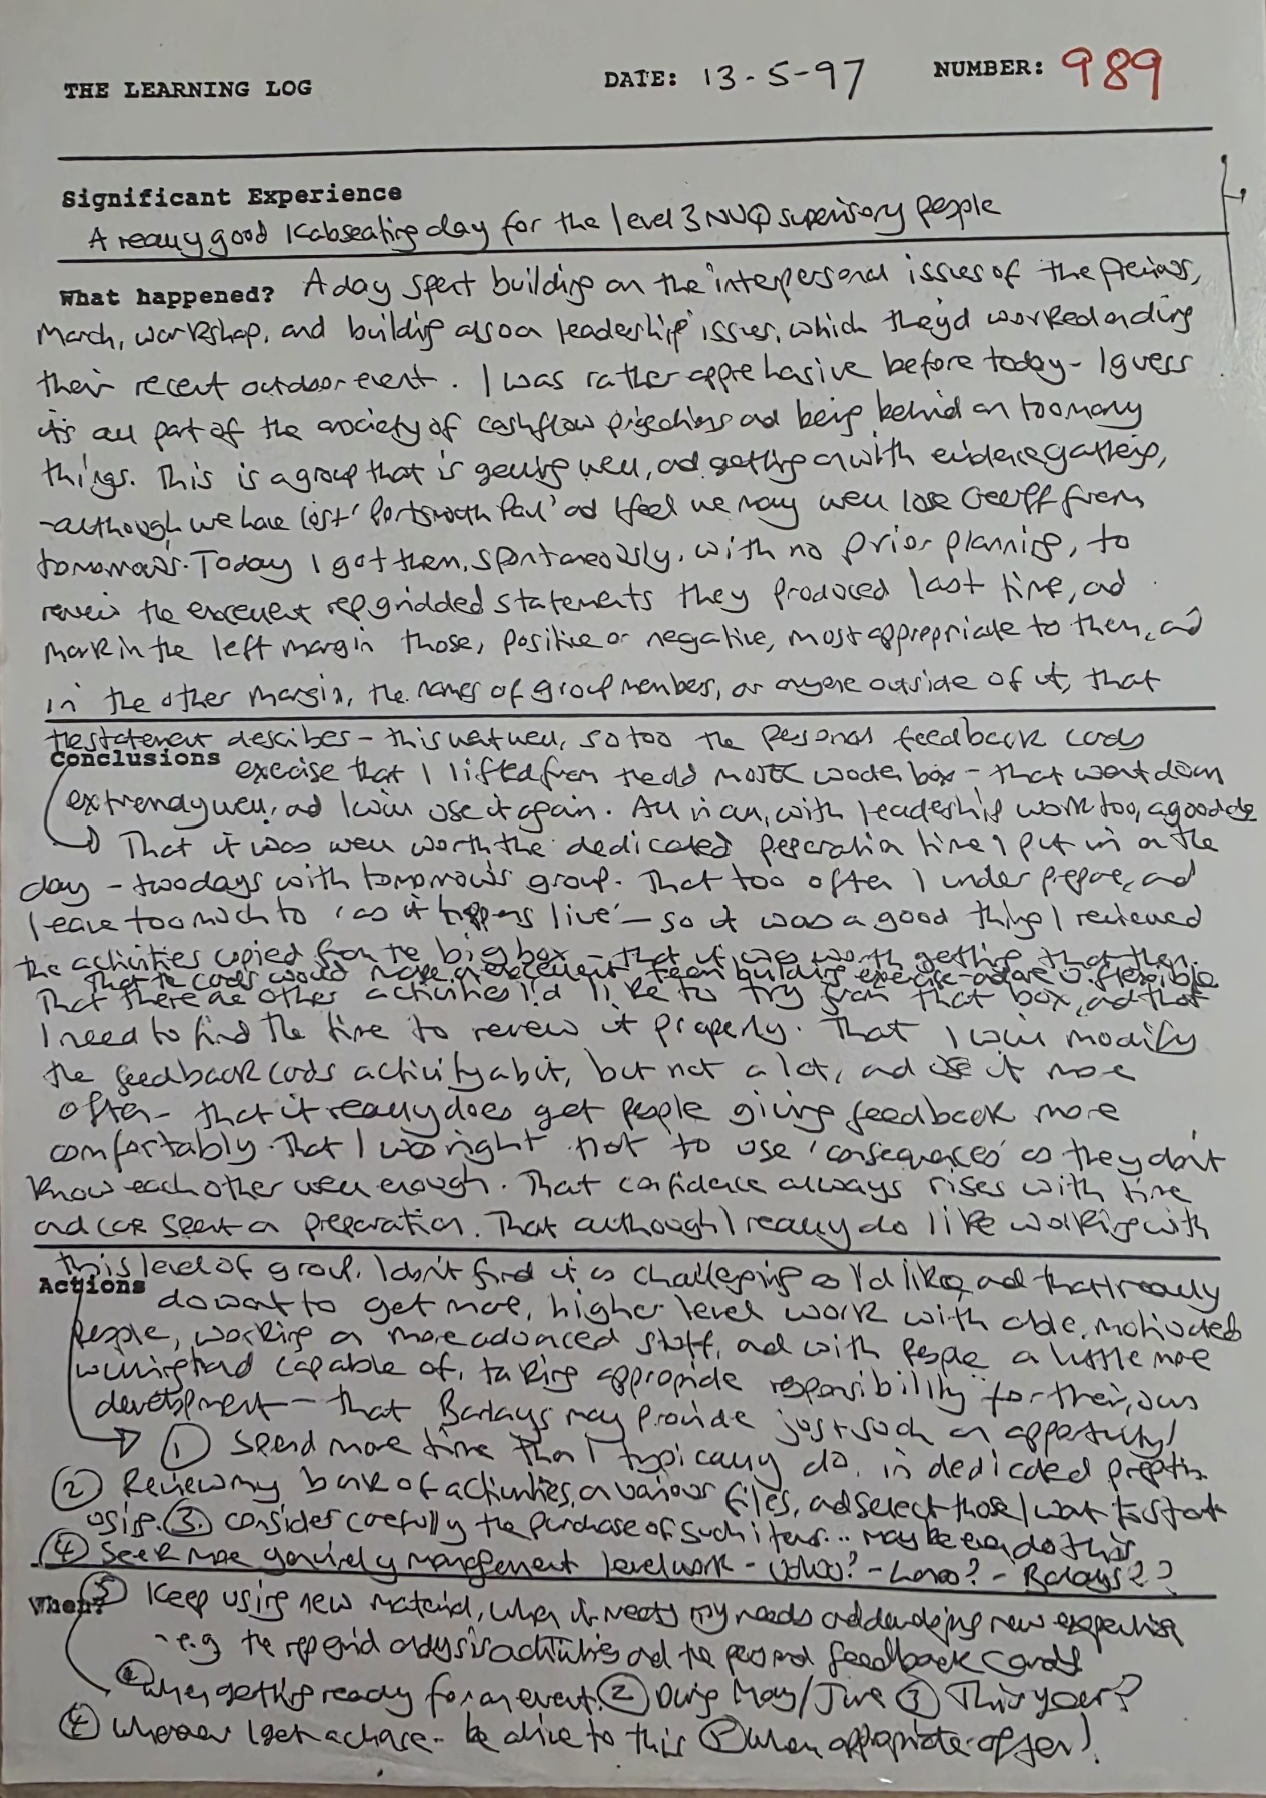 THE LEARNING LOG DATE: 13-5-97 NUMBER: 989
Significant Experience
A really good day for the level 3 NVQ supervisory people
What happened? A day spent building on the 'interpersonal issues of the previous,
March, workshop, and building also on leadership' issues, which they'd worked on during
their recent outdoor event. I was rather apprehensive before today - I guess
it's all part of the anxiety of cashflow projections and being behind on too many
things. This is a group that is gelling well, and getting on with evidence gathering,
- although we have lost 'Portsmouth Paul' and I feel we may well lose Geoff from
tomorrow's. Today I got them, spontaneously, with no prior planning, to
review the excellent rep gridded statements they produced last time, and
mark in the left margin those, positive or negative, most appropriate to them, and
in the other margin, the names of group members, or anyone outside of it, that
the statement describes - this went well, so too the personal feedback cards
Conclusions exercise that I lifted from the old wooden box - that went down
extremely well, and I will use it again. All in all, with leadership work too, a good day
That it was well worth the dedicated preparation time I put in on the
day - two days with tomorrow's group. That too often I under prepare, and
leave too much to 'as it happens live' - so it was a good thing I reviewed
the activities copied from the big box - that it was worth getting that then.
That the cards would make an excellent team building exercise - and are so flexible
That there are other activities I'd like to try from that box, and that
I need to find the time to review it properly. That I will modify
the feedback cards activity a bit, but not a lot, and use it more
often - that it really does get people giving feedback more
comfortably. That I was right not to use 'consequences' as they don't
know each other well enough. That confidence always rises with time
and care spent on preparation. That although I really do like working with
this level of group, I don't find it as challenging as I'd like, and that I really
Actions do want to get more, higher level work with able, motivated
people, working on more advanced stuff, and with people a little more
willing and capable of, taking appropriate responsibility for their own
development - that Barclays may provide just such an opportunity!
① Spend more time than I typically do, in dedicated prep time
② Review my bank of activities, on various files, and select those I want to start
using. ③ consider carefully the purchase of such items... maybe even do this
④ Seek more genuinely management level work - ? - ? - Barclays??
When? ⑤ Keep using new material, when it meets my needs and developing new expertise
- e.g the rep grid analysis activities and the personal feedback cards
① When getting ready for an event ② During May/June ③ This year?
④ Whenever I get a chance - be alive to this ⑤ When appropriate - often!